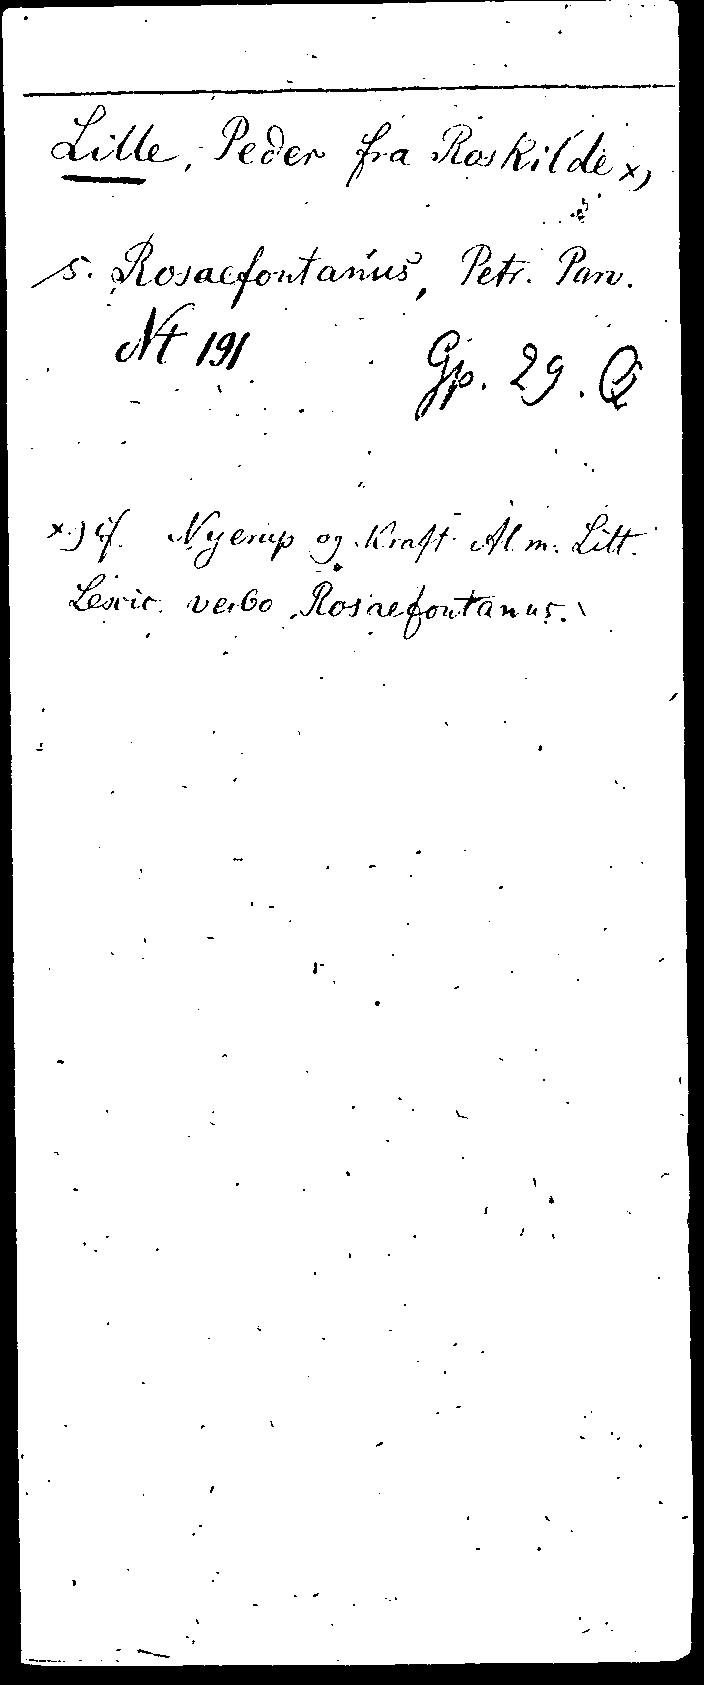 Lille, Peder fra Roskilde x)
s. Rosaefontanus, Petr. Parv.
Nt 191 Gp. 29. Q
x) cf. Nyerup og Kraft Alm. Litt.
Lexic. verbo Rosaefontanus.